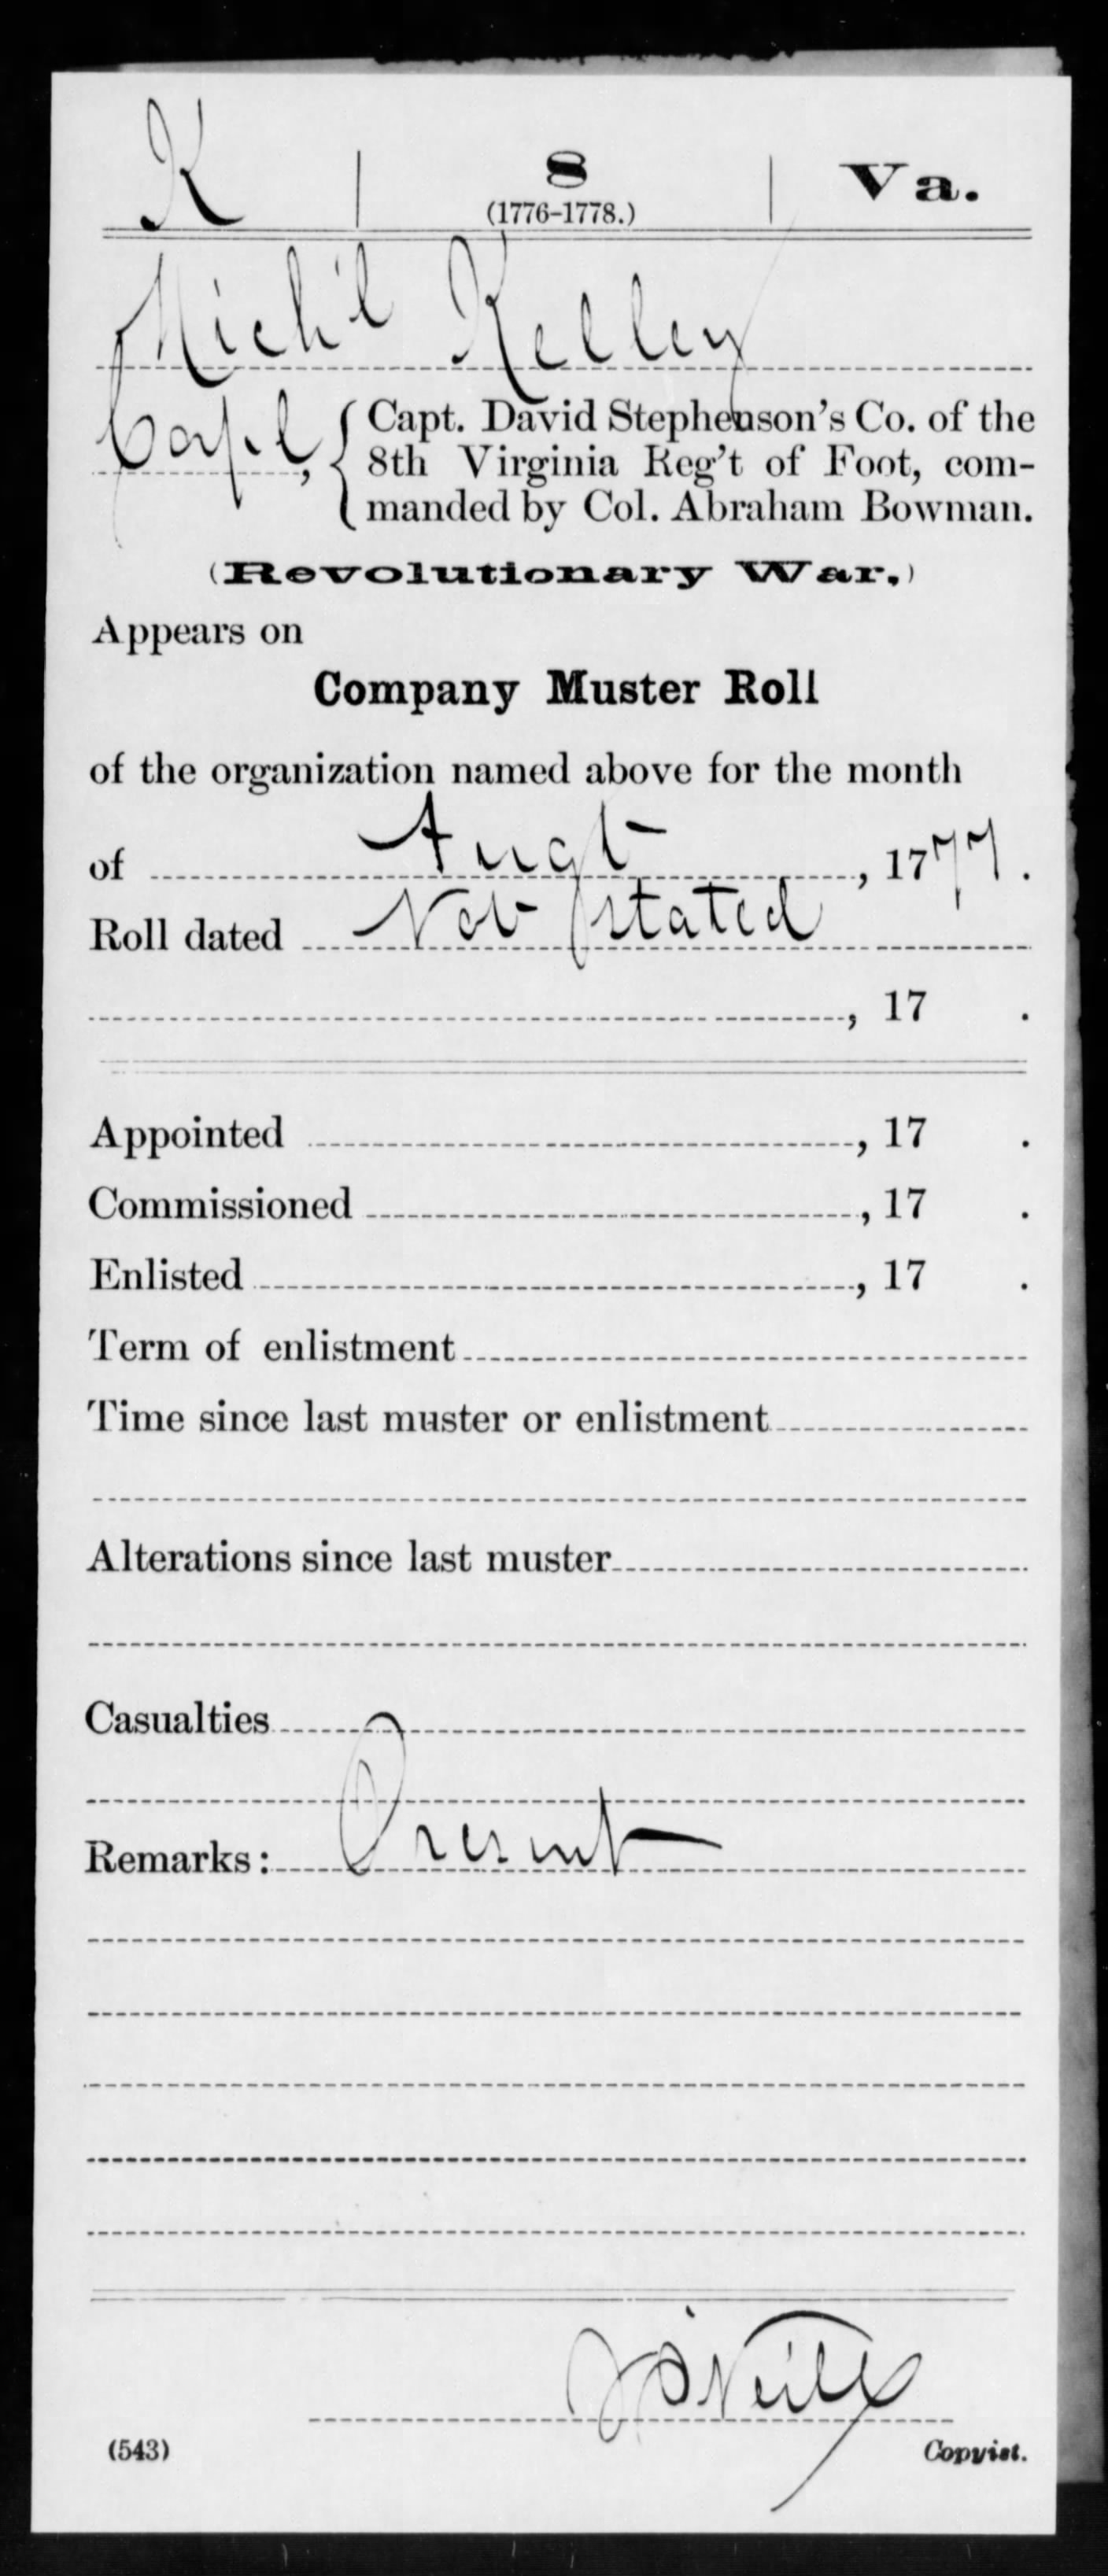 K | 8 | Va.
(1776-1778.)
Mich'l Kelley
Corpl, { Capt. David Stephenson's Co. of the
8th Virginia Reg't of Foot, com-
manded by Col. Abraham Bowman.
(Revolutionary War.)
Appears on
Company Muster Roll
of the organization named above for the month
of Augt, 1777.
Roll dated Not stated
, 17 .
Appointed , 17 .
Commissioned , 17 .
Enlisted , 17 .
Term of enlistment
Time since last muster or enlistment
Alterations since last muster
Casualties
Remarks: Present
J O'Neill
(543) Copyist.